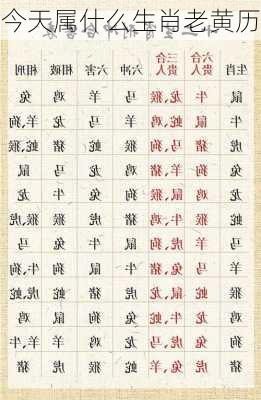 今天属什么生肖老黄历
生肖 六合贵人 三合贵人 六冲 六害 相破 相刑
鼠 牛 龙,猴 马 羊 鸡 兔
牛 鼠 蛇,鸡 羊 马 龙 狗,羊
虎 猪 马,狗 猴 蛇 猪 蛇,猴
兔 狗 羊,猪 鸡 龙 马 鼠
龙 鸡 鼠,猴 狗 兔 牛 龙
蛇 猴 牛,鸡 猪 虎 猴 虎,猴
马 羊 虎,狗 鼠 牛 兔 马
羊 马 兔,猪 牛 鼠 狗 狗,牛
猴 蛇 鼠,龙 虎 猪 蛇 虎,蛇
鸡 龙 牛,蛇 兔 狗 鼠 鸡
狗 兔 虎,马 龙 鸡 羊 牛,羊
猪 虎 兔,羊 蛇 猴 虎 猪